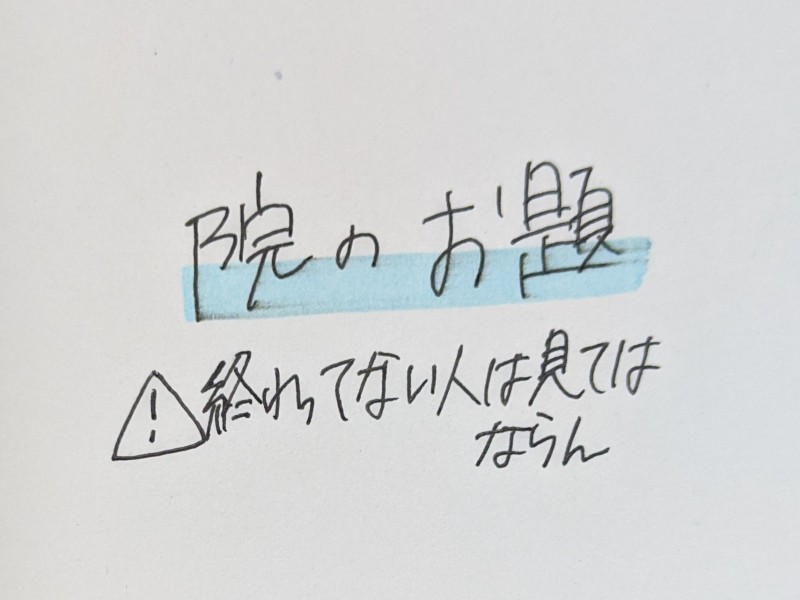 院のお題
⚠終わってない人は見ては
ならん